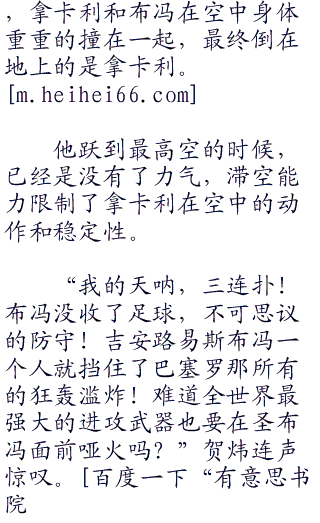 ，拿卡利和布冯在空中身体
重重的撞在一起，最终倒在
地上的是拿卡利。
[m.heihei66.com]
他跃到最高空的时候，
已经是没有了力气，滞空能
力限制了拿卡利在空中的动
作和稳定性。
“我的天呐，三连扑！
布冯没收了足球，不可思议
的防守！吉安路易斯布冯一
个人就挡住了巴塞罗那所有
的狂轰滥炸！难道全世界最
强大的进攻武器也要在圣布
冯面前哑火吗？”贺炜连声
惊叹。[百度一下“有意思书
院